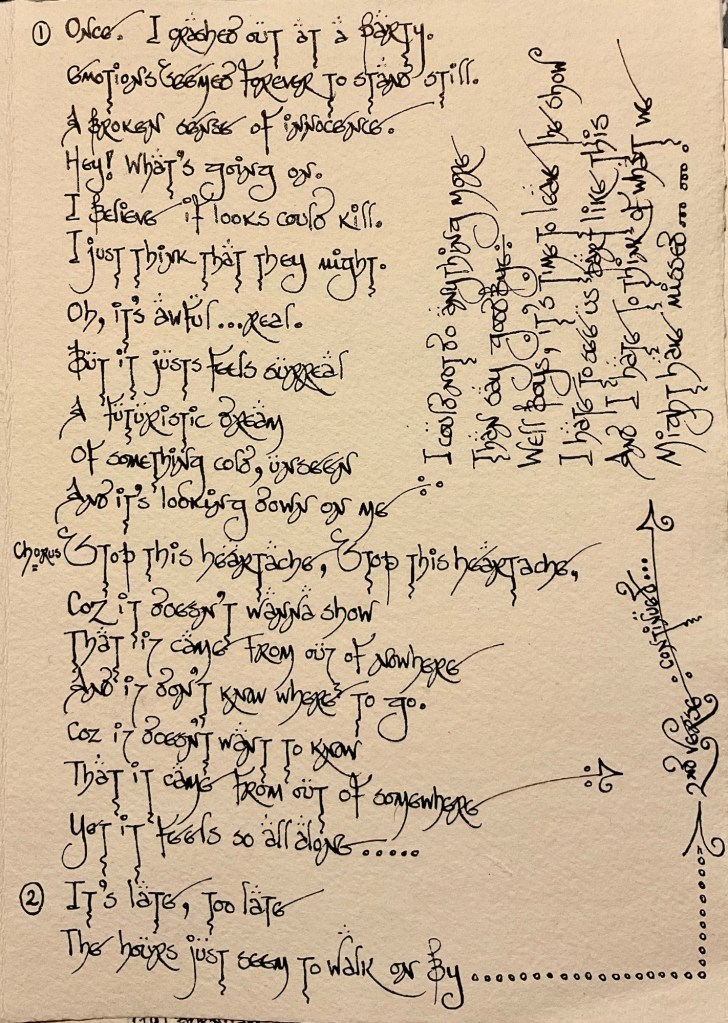 ① Once. I crached out at a party.
Emotions seemed forever to stand still.
A broken sense of innocence.
Hey! What's going on.
I believe if looks could kill.
I just think that they might.
Oh, it's awful...real.
But it justs feels surreal
A futuristic dream
Of something cold, unseen
And it's looking down on me
Chorus Stop this heartache, Stop this heartache,
Coz it doesn't wanna show
That it came from out of nowhere
And it don't know where to go.
Coz it doesn't want to know
That it came from out of somewhere
Yet it feels so all along.....
② It's late, too late
The hours just seem to walk on by
2nd verse .. continued...
I could not do anything more
Than say goodbye.
Well boys, it's time to leave the show
I hate to see us part like this
And I hate to think of what we
Might have missed........